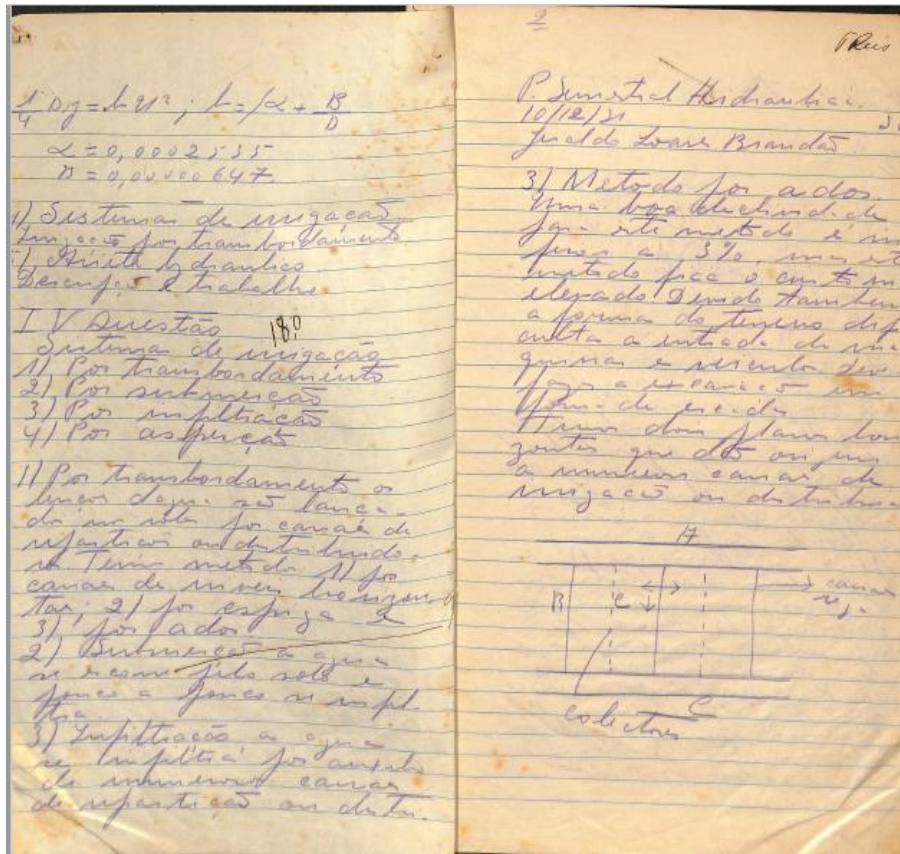 1/4 Dj = b u² ; b = α + B/D
α = 0,0002535
B = 0,00000647.
1) Sistemas de irrigação.
Irrigação por transbordamento
Ariete hydraulico
Descripção e trabalho.
IV Questão
18.
Sistema de irrigação
1) Por transbordamento
2) Por submerção
3) Por infiltração
4) Por asperção
1) Por transbordamento os
lençoes dagua são lança-
do no sólo por canaes de
repartição ou distribuido-
canaes de niveis horizon-
taes; 2) por espiga e
3) por ados
2) Submerção a agua
se escorre pelo solo e
pouco a pouco se infil-
tra
3) Infiltração a agua
se infiltra por auxilio
de numeroso canaes
de repartição ou distri-
2
P. Semestral Hidraulica.
10/12/31
Geraldo Soares Brandão
3) Metodo por ados.
Uma boa declividade
para este metodo é in
ferior a 3%, mas est
metodo fica o custo m
elevado Devido tambem
a forma do terreno dif
culta a entrada de ma
quinas e veiculos deve
fazer a escavação em
Temos dois planos hori
zontes que dão origem
a numeros canaes de
irrigação ou distribui
A
B
C
canaes
C
colectores